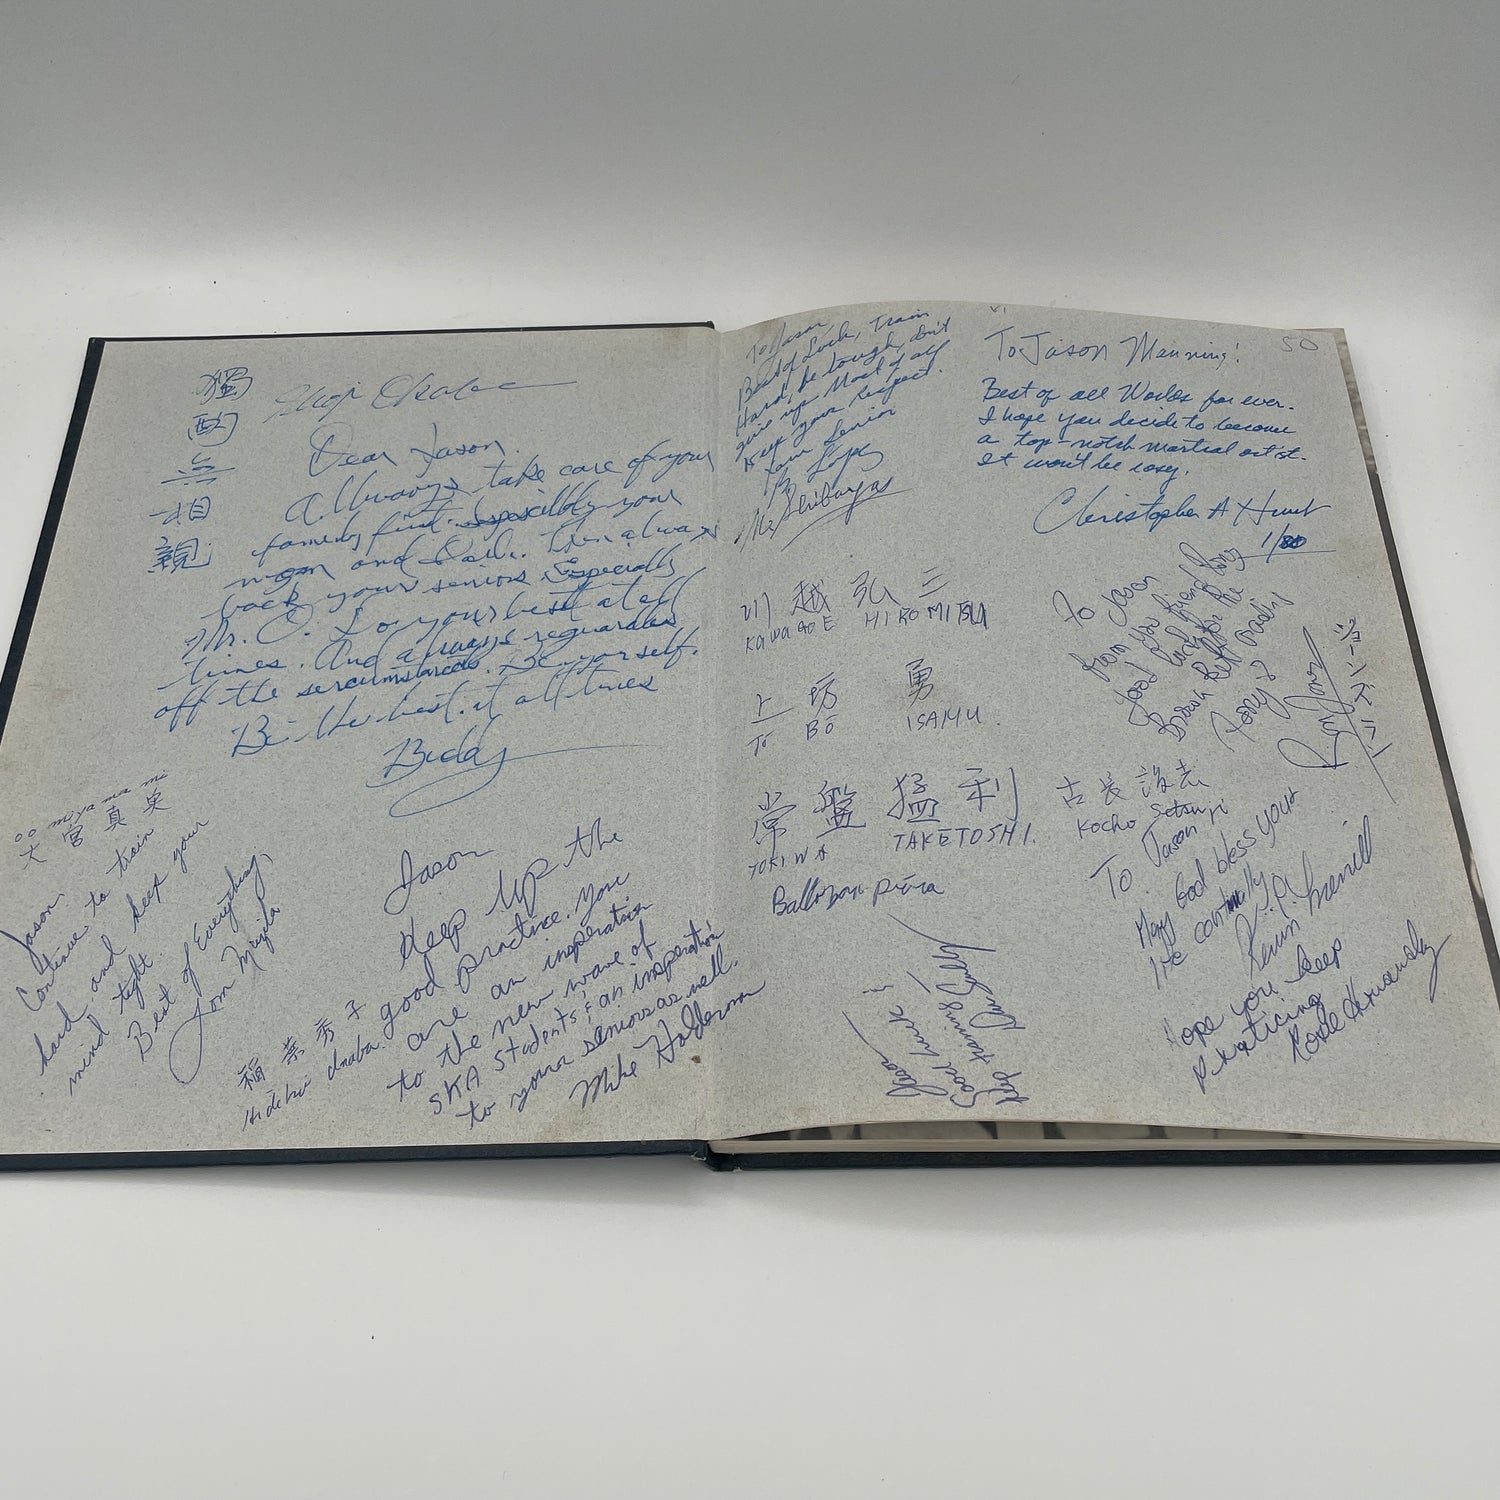 Dear Jason,
Allways take care of your
family first. Especially your
mom and Dad. Then always
back your seniors Especially
Mr. O. Do your best at all
times. And always reguardless
off the sercumstances. Be yourself.
Be the best at all times
Buddy
oo miya ma mi
大宮真実
Jason
Continue to train
hard and keep your
mind tight.
Best of Everything
Tom
稲葉秀子
Hideko Inaba
Jason
Keep Up the
good practice. You
are an insperation
to the new wave of
SKA Students & an insperation
to your seniors as well.
Mike Halderman
To Jason
Best of Luck, Train
Hard, be tough, don't
give up Most of all
Keep your respect.
Your Senior
B. Lopez
To Jason Manning!
Best of all Worlds for ever.
I hope you decide to become
a top-notch martial artist.
It won't be easy.
Christopher A Hunt
川越弘三
KAWAGOE HIROMITSU
上坊 勇
TŌ BŌ ISAMU.
常盤猛利
TOKIWA TAKETOSHI.
To Jason
from your friend Rory
Good luck
Brown Belt
Rory
古長設志
KOCHO Setsuji
To Jason
May God bless your
life continually
Kevin
Hope you keep
practicing
Jason
Good luck &
Keep training!